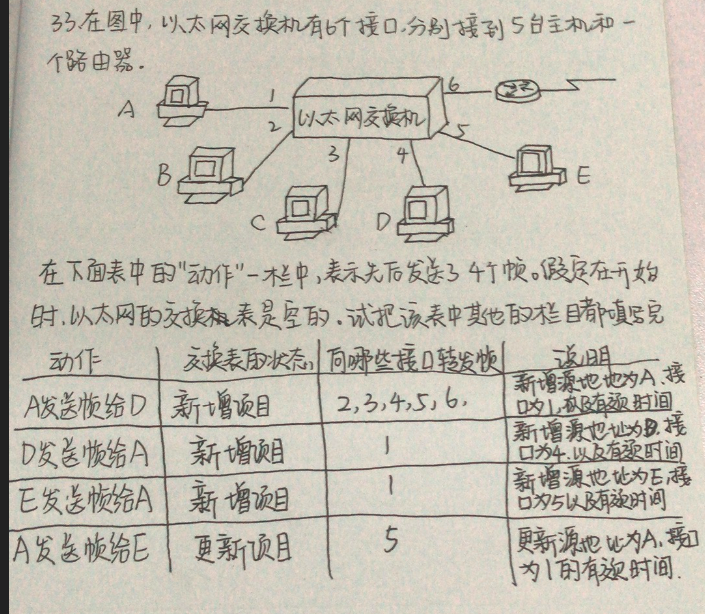 33.在图中,以太网交换机有6个接口,分别接到5台主机和一
个路由器.
A
1
6
以太网交换机
2
5
3
4
B
E
C
D
在下面表中的"动作"一栏中,表示先后发送了4个帧。假定在开始
时,以太网的交换机表是空的.试把该表中其他的栏目都填写完
动作 交换表的状态, 向哪些接口转发帧 说明
A发送帧给D 新增项目 2,3,4,5,6, 新增源地址为A、接
口为1,以及有效时间
D发送帧给A 新增项目 1 新增源地址为D,接
口为4.以及有效时间
E发送帧给A 新增项目 1 新增源地址为E,接
口为5以及有效时间
A发送帧给E 更新项目 5 更新源地址为A,接口
为1的有效时间.